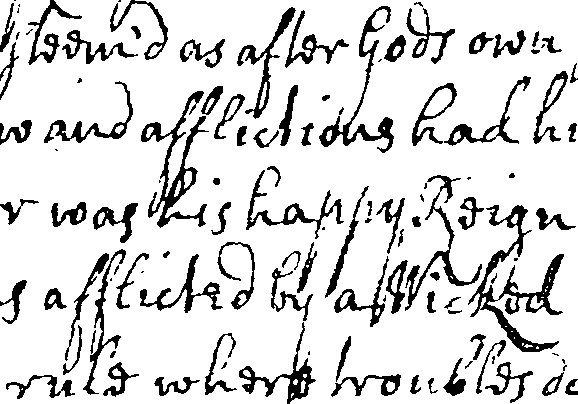 steem'd as after Gods own
and afflictions had
was his happy Reign
afflicted by a Wicked
rule where troubles